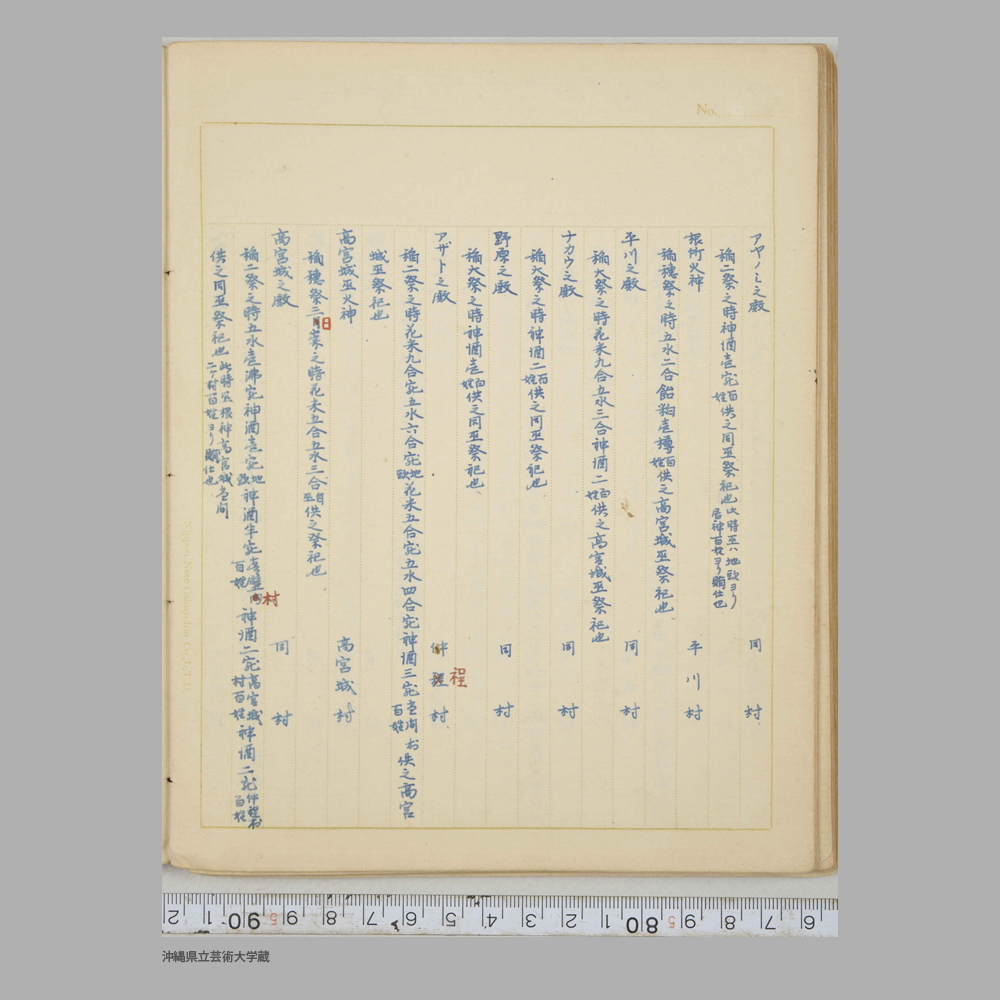 No.
アヤノミ之殿 同村
稲二祭之時神酒壱宛百姓供之同巫祭祀也此時巫ハ地頭ヨリ居神百姓ヨリ賄仕也
根所火神 平川村
稲穂祭之時五水二合飴粕壱樽百姓供之高宮城巫祭祀也
平川之殿 同村
稲大祭之時花米九合五水三合神酒二百姓供之高宮城巫祭祀也
ナカウ之殿 同村
稲大祭之時神酒二百姓供之同巫祭祀也
野原之殿 同村
稲大祭之時神酒壱百姓供之同巫祭祀也
アザト之殿 伴程村
稲二祭之時花米九合宛五水六合宛地頭花米五合宛五水四合宛神酒三宛当間村百姓供之高宮
城巫祭祀也
高宮城巫火神 高宮城村
稲穂祭三日崇之時花米五合五水三合自巫供之祭祀也
高宮城之殿 同村
稲二祭之時五水壱沸宛神酒壱宛地頭神酒半宛村百姓神酒二宛高宮城村百姓神酒二宛伴程村百姓
供之同巫祭祀也此時居根神高宮城当間二ケ村百姓ヨリ賄仕也
2 1 90 9 8 7 6 5 4 3 2 1 80 9 8 7 6
沖縄県立芸術大学蔵